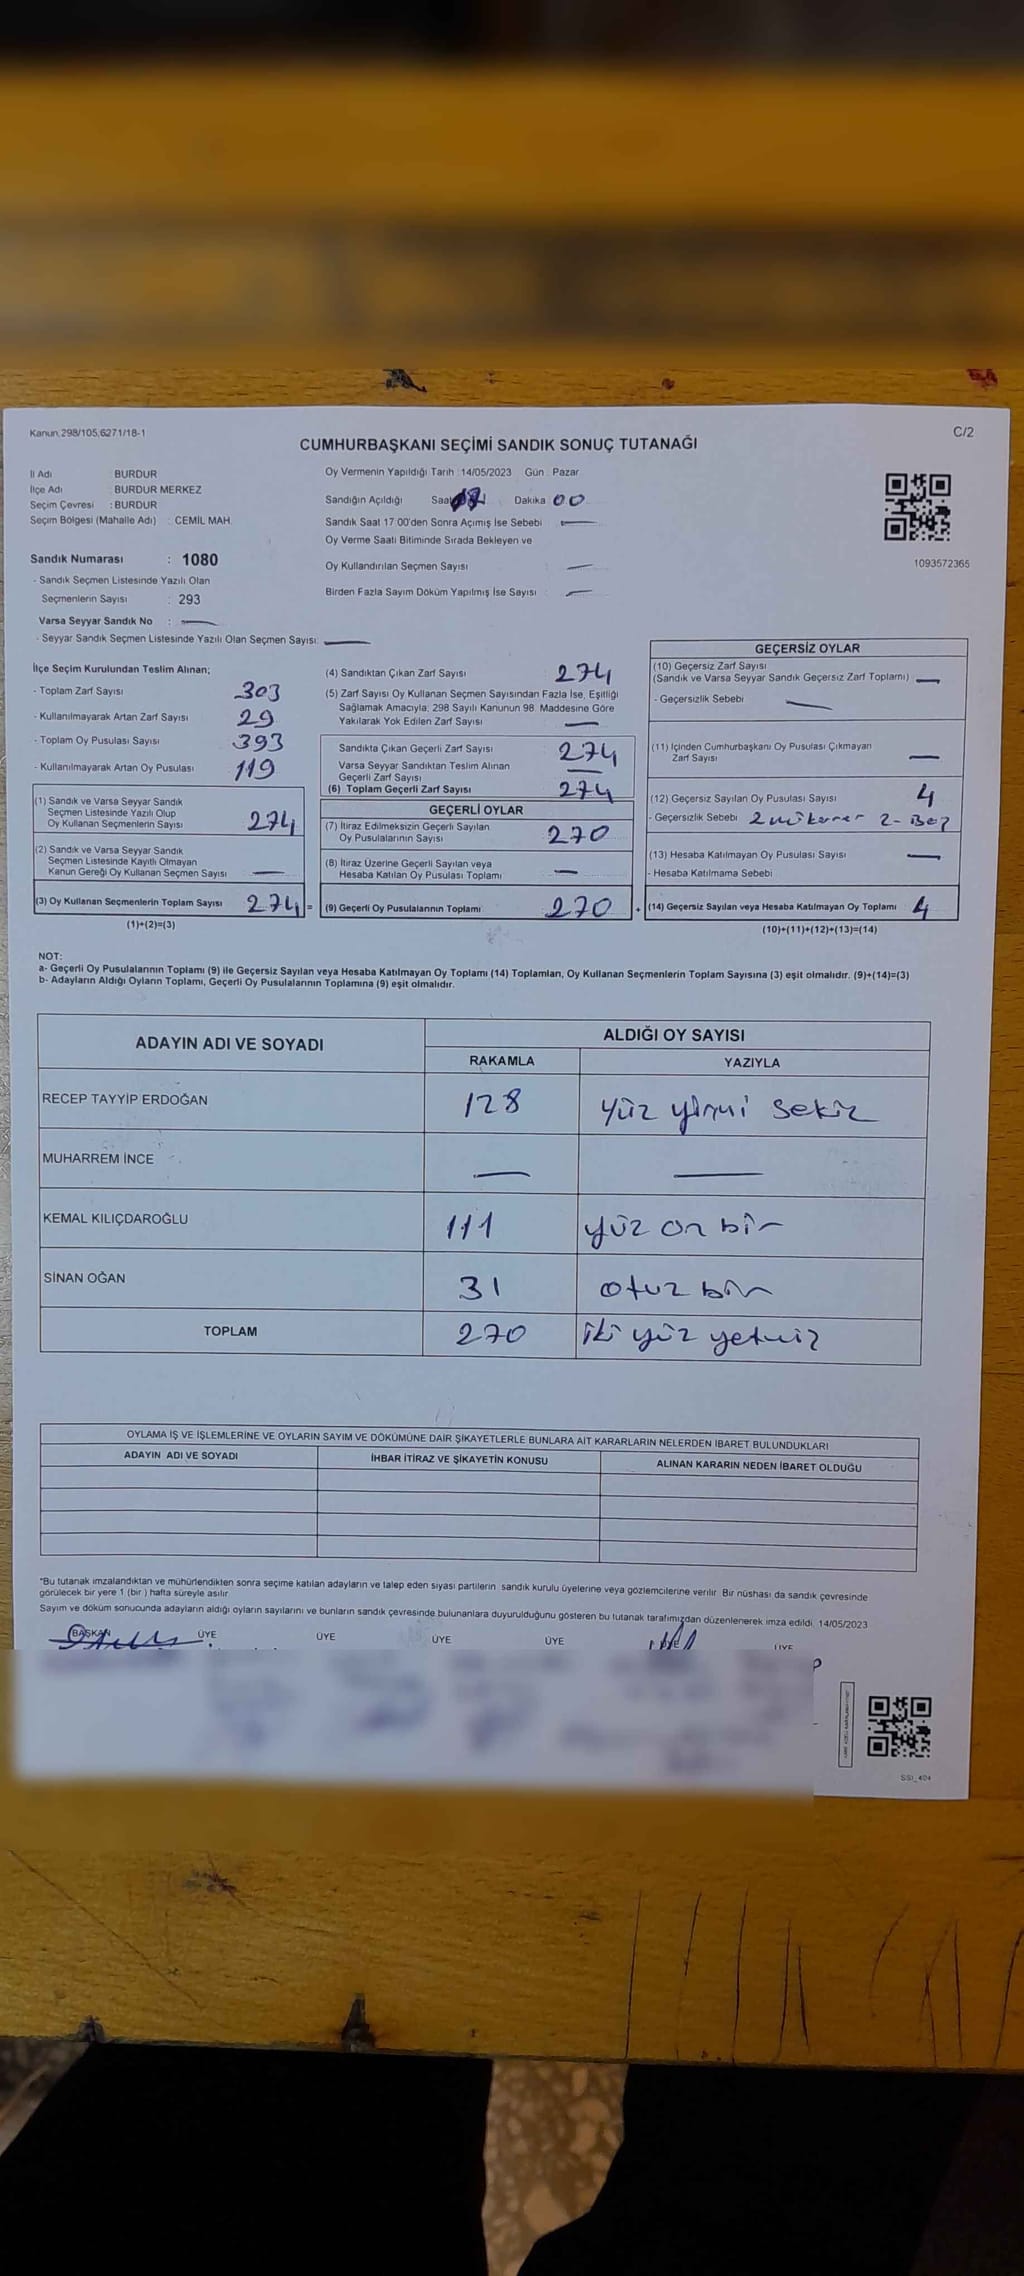 Kanun,298/105,6271/18-1
C/2
CUMHURBAŞKANI SEÇİMİ SANDIK SONUÇ TUTANAĞI
İl Adı BURDUR
İlçe Adı : BURDUR MERKEZ
Seçim Çevresi : BURDUR
Seçim Bölgesi (Mahalle Adı) : CEMİL MAH.
Sandık Numarası : 1080
- Sandık Seçmen Listesinde Yazılı Olan
Seçmenlerin Sayısı : 293
Varsa Seyyar Sandık No : —
- Seyyar Sandık Seçmen Listesinde Yazılı Olan Seçmen Sayısı: —
Oy Vermenin Yapıldığı Tarih : 14/05/2023 Gün : Pazar
Sandığın Açıldığı Saat Dakika 00
Sandık Saat 17:00'den Sonra Açımış İse Sebebi : —
Oy Verme Saati Bitiminde Sırada Bekleyen ve
Oy Kullandırılan Seçmen Sayısı : —
Birden Fazla Sayım Döküm Yapılmış İse Sayısı : —
1093572365
İlçe Seçim Kurulundan Teslim Alınan;
- Toplam Zarf Sayısı 303
- Kullanılmayarak Artan Zarf Sayısı 29
- Toplam Oy Pusulası Sayısı 393
- Kullanılmayarak Artan Oy Pusulası 119
(1) Sandık ve Varsa Seyyar Sandık
Seçmen Listesinde Yazılı Olup
Oy Kullanan Seçmenlerin Sayısı 274
(2) Sandık ve Varsa Seyyar Sandık
Seçmen Listesinde Kayıtlı Olmayan
Kanun Gereği Oy Kullanan Seçmen Sayısı —
(3) Oy Kullanan Seçmenlerin Toplam Sayısı 274 =
(1)+(2)=(3)
(4) Sandıktan Çıkan Zarf Sayısı 274
(5) Zarf Sayısı Oy Kullanan Seçmen Sayısından Fazla İse, Eşitliği
Sağlamak Amacıyla, 298 Sayılı Kanunun 98. Maddesine Göre
Yakılarak Yok Edilen Zarf Sayısı —
Sandıkta Çıkan Geçerli Zarf Sayısı 274
Varsa Seyyar Sandıktan Teslim Alınan
Geçerli Zarf Sayısı —
(6) Toplam Geçerli Zarf Sayısı 274
GEÇERLİ OYLAR
(7) İtiraz Edilmeksizin Geçerli Sayılan
Oy Pusulalarının Sayısı 270
(8) İtiraz Üzerine Geçerli Sayılan veya
Hesaba Katılan Oy Pusulası Toplamı —
(9) Geçerli Oy Pusulalarının Toplamı 270 +
GEÇERSİZ OYLAR
(10) Geçersiz Zarf Sayısı
(Sandık ve Varsa Seyyar Sandık Geçersiz Zarf Toplamı) —
- Geçersizlik Sebebi —
(11) İçinden Cumhurbaşkanı Oy Pusulası Çıkmayan
Zarf Sayısı —
(12) Geçersiz Sayılan Oy Pusulası Sayısı 4
- Geçersizlik Sebebi 2 mükerrer 2- Boş
(13) Hesaba Katılmayan Oy Pusulası Sayısı —
- Hesaba Katılmama Sebebi
(14) Geçersiz Sayılan veya Hesaba Katılmayan Oy Toplamı 4
(10)+(11)+(12)+(13)=(14)
NOT:
a- Geçerli Oy Pusulalarının Toplamı (9) ile Geçersiz Sayılan veya Hesaba Katılmayan Oy Toplamı (14) Toplamları, Oy Kullanan Seçmenlerin Toplam Sayısına (3) eşit olmalıdır. (9)+(14)=(3)
b- Adayların Aldığı Oyların Toplamı, Geçerli Oy Pusulalarının Toplamına (9) eşit olmalıdır.
ADAYIN ADI VE SOYADI ALDIĞI OY SAYISI
RAKAMLA YAZIYLA
RECEP TAYYİP ERDOĞAN 128 yüz yirmi sekiz
MUHARREM İNCE — —
KEMAL KILIÇDAROĞLU 111 yüz on bir
SİNAN OĞAN 31 otuz bir
TOPLAM 270 iki yüz yetmiş
OYLAMA İŞ VE İŞLEMLERİNE VE OYLARIN SAYIM VE DÖKÜMÜNE DAİR ŞİKAYETLERLE BUNLARA AİT KARARLARIN NELERDEN İBARET BULUNDUKLARI
ADAYIN ADI VE SOYADI İHBAR İTİRAZ VE ŞİKAYETİN KONUSU ALINAN KARARIN NEDEN İBARET OLDUĞU
*Bu tutanak imzalandıktan ve mühürlendikten sonra seçime katılan adayların ve talep eden siyasi partilerin sandık kurulu üyelerine veya gözlemcilerine verilir. Bir nüshası da sandık çevresinde
görülecek bir yere 1 (bir) hafta süreyle asılır.
Sayım ve döküm sonucunda adayların aldığı oyların sayılarını ve bunların sandık çevresinde bulunanlara duyurulduğunu gösteren bu tutanak tarafımızdan düzenlenerek imza edildi. 14/05/2023
BAŞKAN ÜYE ÜYE ÜYE ÜYE ÜYE ÜYE
SSI_404